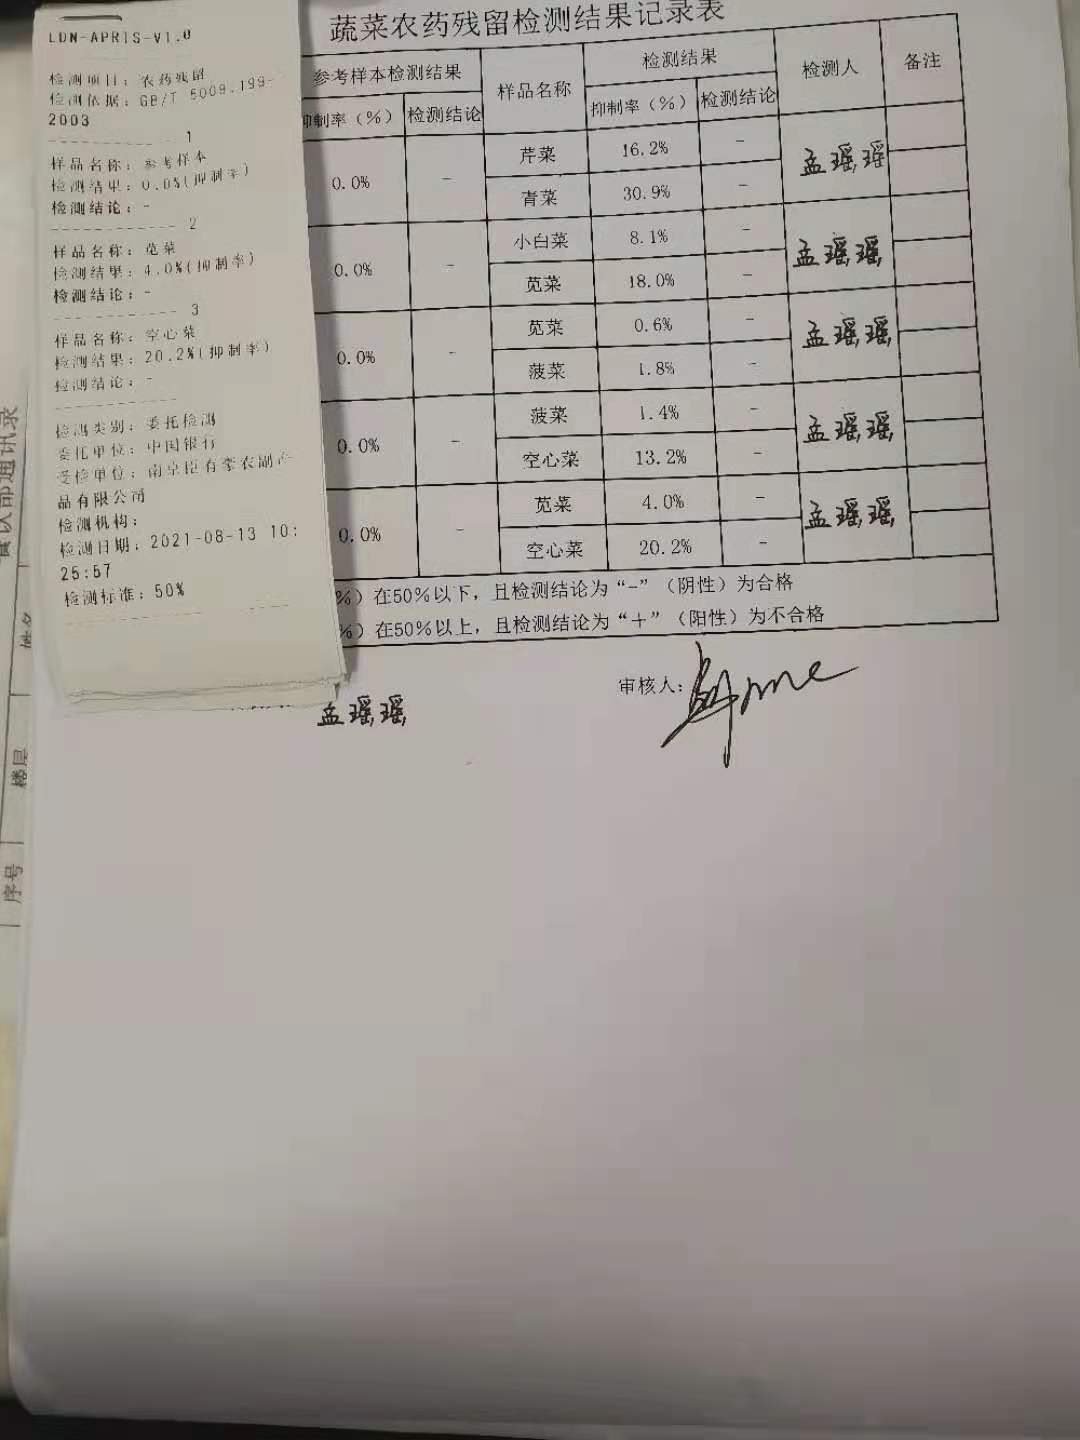 LDN-APRIS-V1.0
检测项目：农药残留
检测依据：GB/T 5009.199-
2003
1
样品名称：参考样本
检测结果：0.0%(抑制率)
检测结论：-
2
样品名称：苋菜
检测结果：4.0%(抑制率)
检测结论：-
3
样品名称：空心菜
检测结果：20.2%(抑制率)
检测结论：-
检测类别：委托检测
委托单位：中国银行
受检单位：南京臣有农副产
品有限公司
检测机构：
检测日期：2021-08-13 10:
25:57
检测标准：50%
蔬菜农药残留检测结果记录表
参考样本检测结果 样品名称 检测结果 检测人 备注
抑制率（%） 检测结论 抑制率（%） 检测结论
0.0% - 芹菜 16.2% - 孟瑶瑶
青菜 30.9% -
0.0% - 小白菜 8.1% - 孟瑶瑶
苋菜 18.0% -
0.0% - 苋菜 0.6% - 孟瑶瑶
菠菜 1.8% -
0.0% - 菠菜 1.4% - 孟瑶瑶
空心菜 13.2% -
0.0% - 苋菜 4.0% - 孟瑶瑶
空心菜 20.2% -
%）在50%以下，且检测结论为“-”（阴性）为合格
%）在50%以上，且检测结论为“+”（阳性）为不合格
孟瑶瑶
审核人：
通讯录
楼层
序号